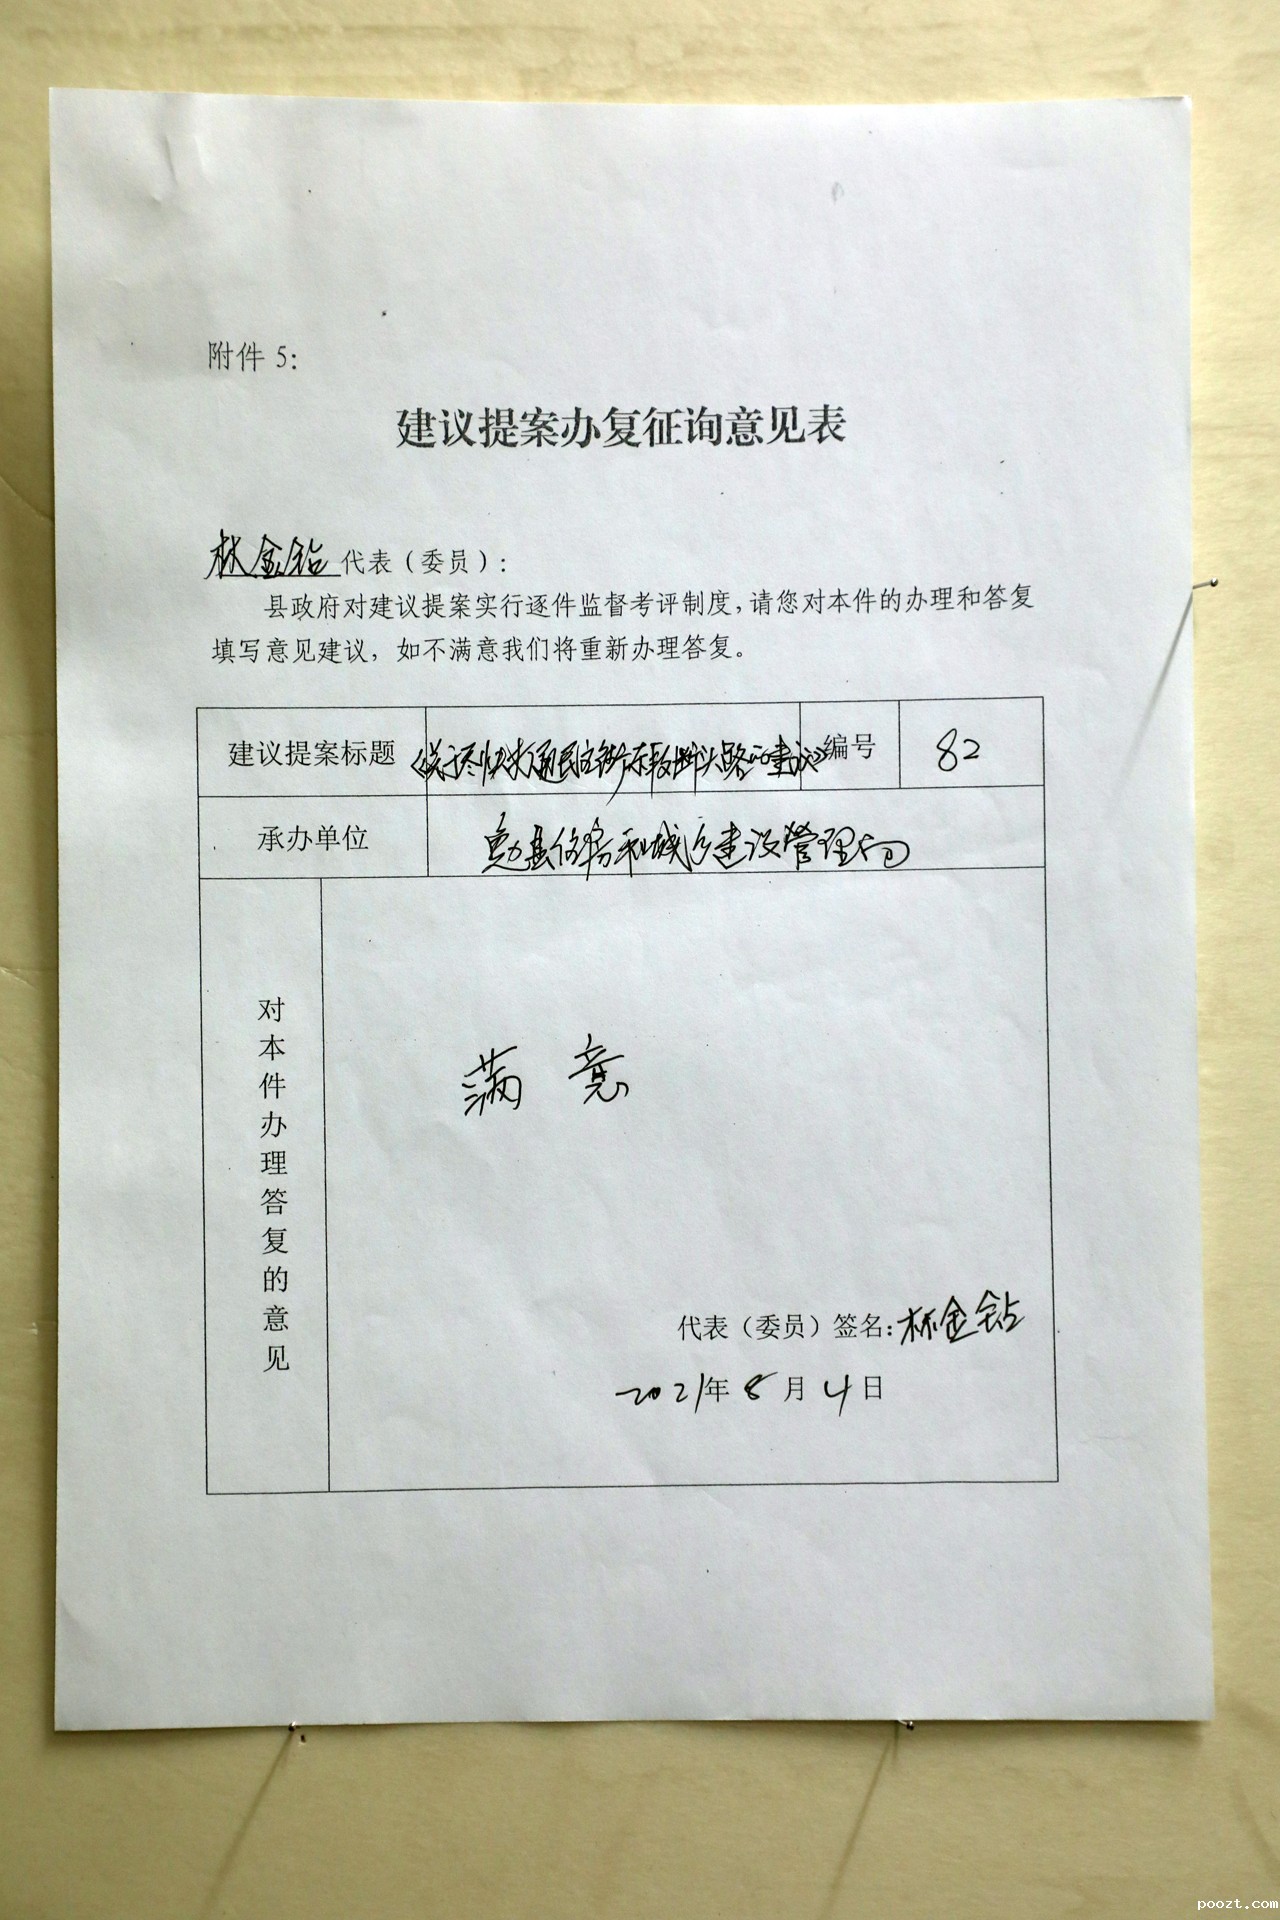 附件 5:
建议提案办复征询意见表
林金钻代表（委员）:
县政府对建议提案实行逐件监督考评制度,请您对本件的办理和答复
填写意见建议，如不满意我们将重新办理答复。
建议提案标题 《关于尽快打通民主街东段断头路的建议》 编号 82
承办单位 县住房和城乡建设管理局
对本件办理答复的意见
满意
代表（委员）签名:林金钻
2021年 8 月 4 日
poozt.com